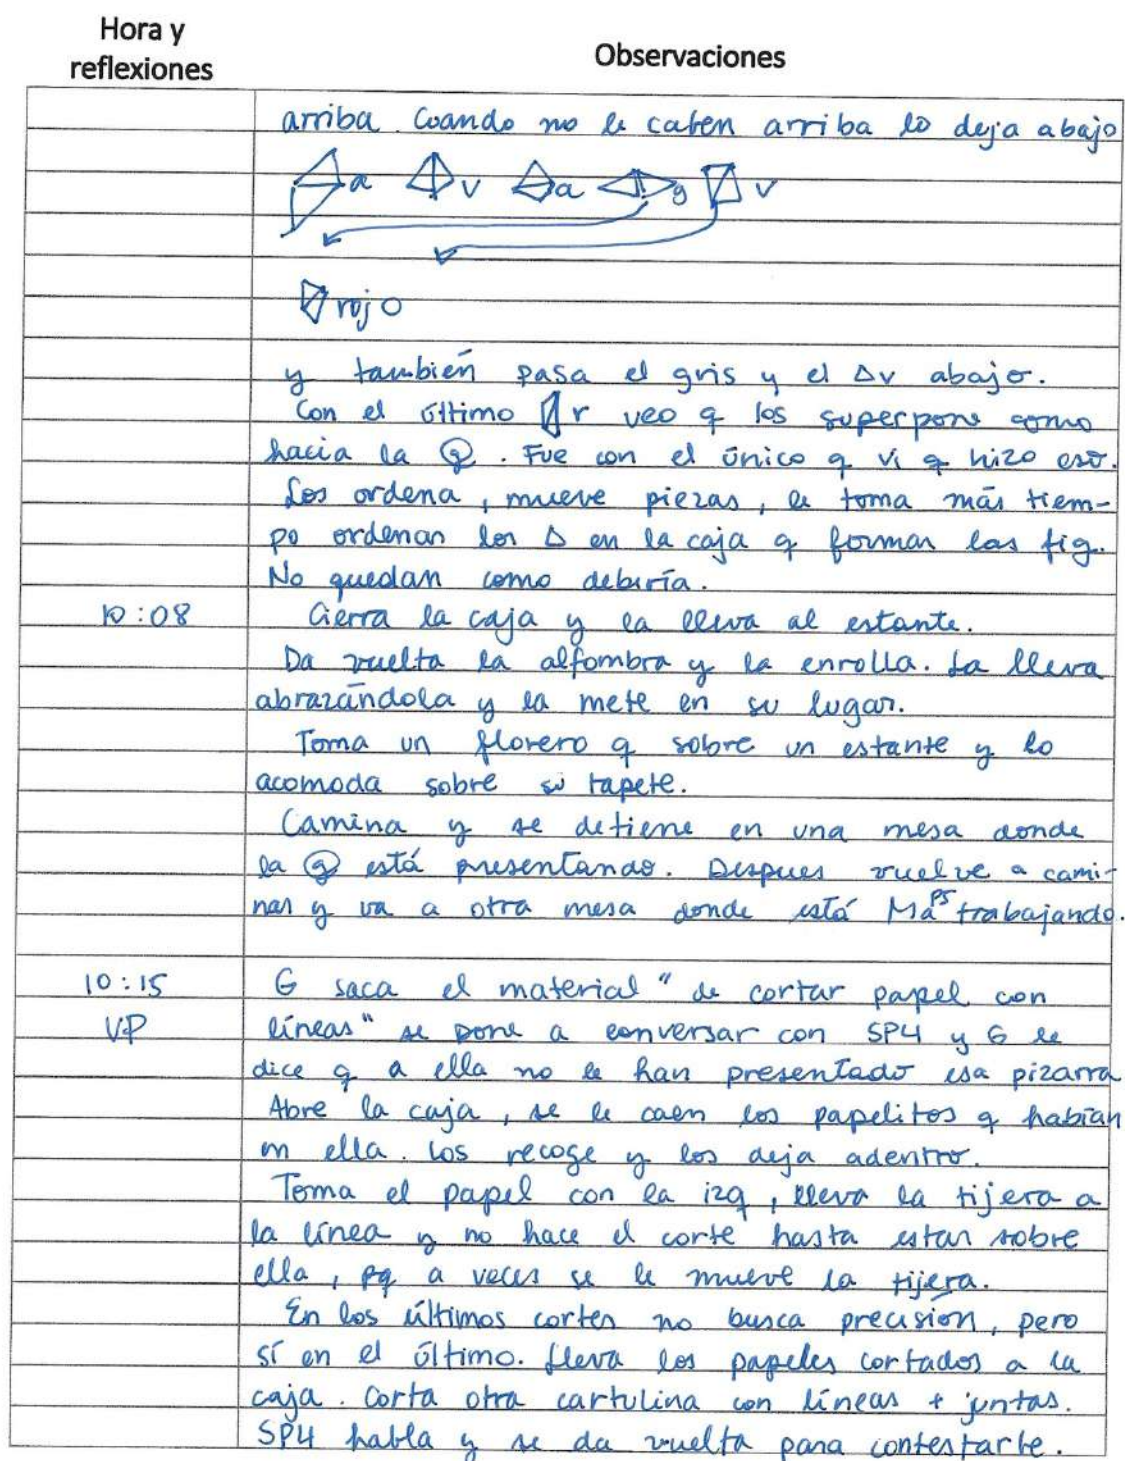 Hora y
reflexiones
Observaciones
arriba. Cuando no le caben arriba lo deja abajo
a v a g v
rojo
y también pasa el gris y el Δv abajo.
Con el último r veo q los superpone como
hacia la . Fue con el único q vi q hizo eso.
Los ordena, mueve piezas, le toma más tiem-
po ordenar los Δ en la caja q forman las fig.
No quedan como debería.
10:08 Cierra la caja y la lleva al estante.
Da vuelta la alfombra y la enrolla. La lleva
abrazándola y la mete en su lugar.
Toma un florero q sobre un estante y lo
acomoda sobre su tapete.
Camina y se detiene en una mesa donde
la está presentando. Despues vuelve a cami-
nar y va a otra mesa donde está Ma PS trabajando.
10:15 G saca el material "de cortar papel con
VP líneas" se pone a conversar con SP4 y G le
dice q a ella no le han presentado esa pizarra
Abre la caja, se le caen los papelitos q habían
en ella. Los recoge y los deja adentro.
Toma el papel con la izq, lleva la tijera a
la línea y no hace el corte hasta estar sobre
ella, pq a veces se le mueve la tijera.
En los últimos cortes no busca precisión, pero
sí en el último. Lleva los papeles cortados a la
caja. Corta otra cartulina con líneas + juntas.
SP4 habla y se da vuelta para contestarle.